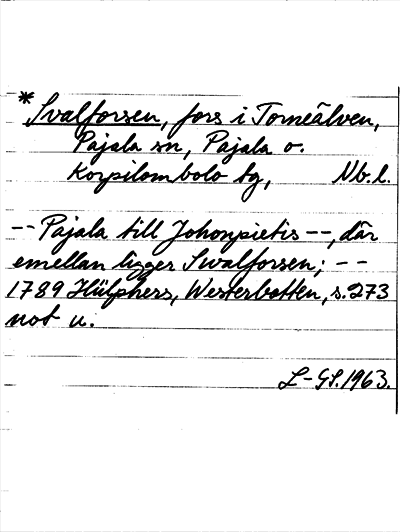 * Svalforsen, fors i Torneälven,
Pajala sn, Pajala o.
Korpilombolo tg, Nb.l.
-- Pajala till Johonpietis --, där
emellan ligger Swalforsen; --
1789 Hülphers, Westerbotten, s. 273
not u.
L-GL. 1963.